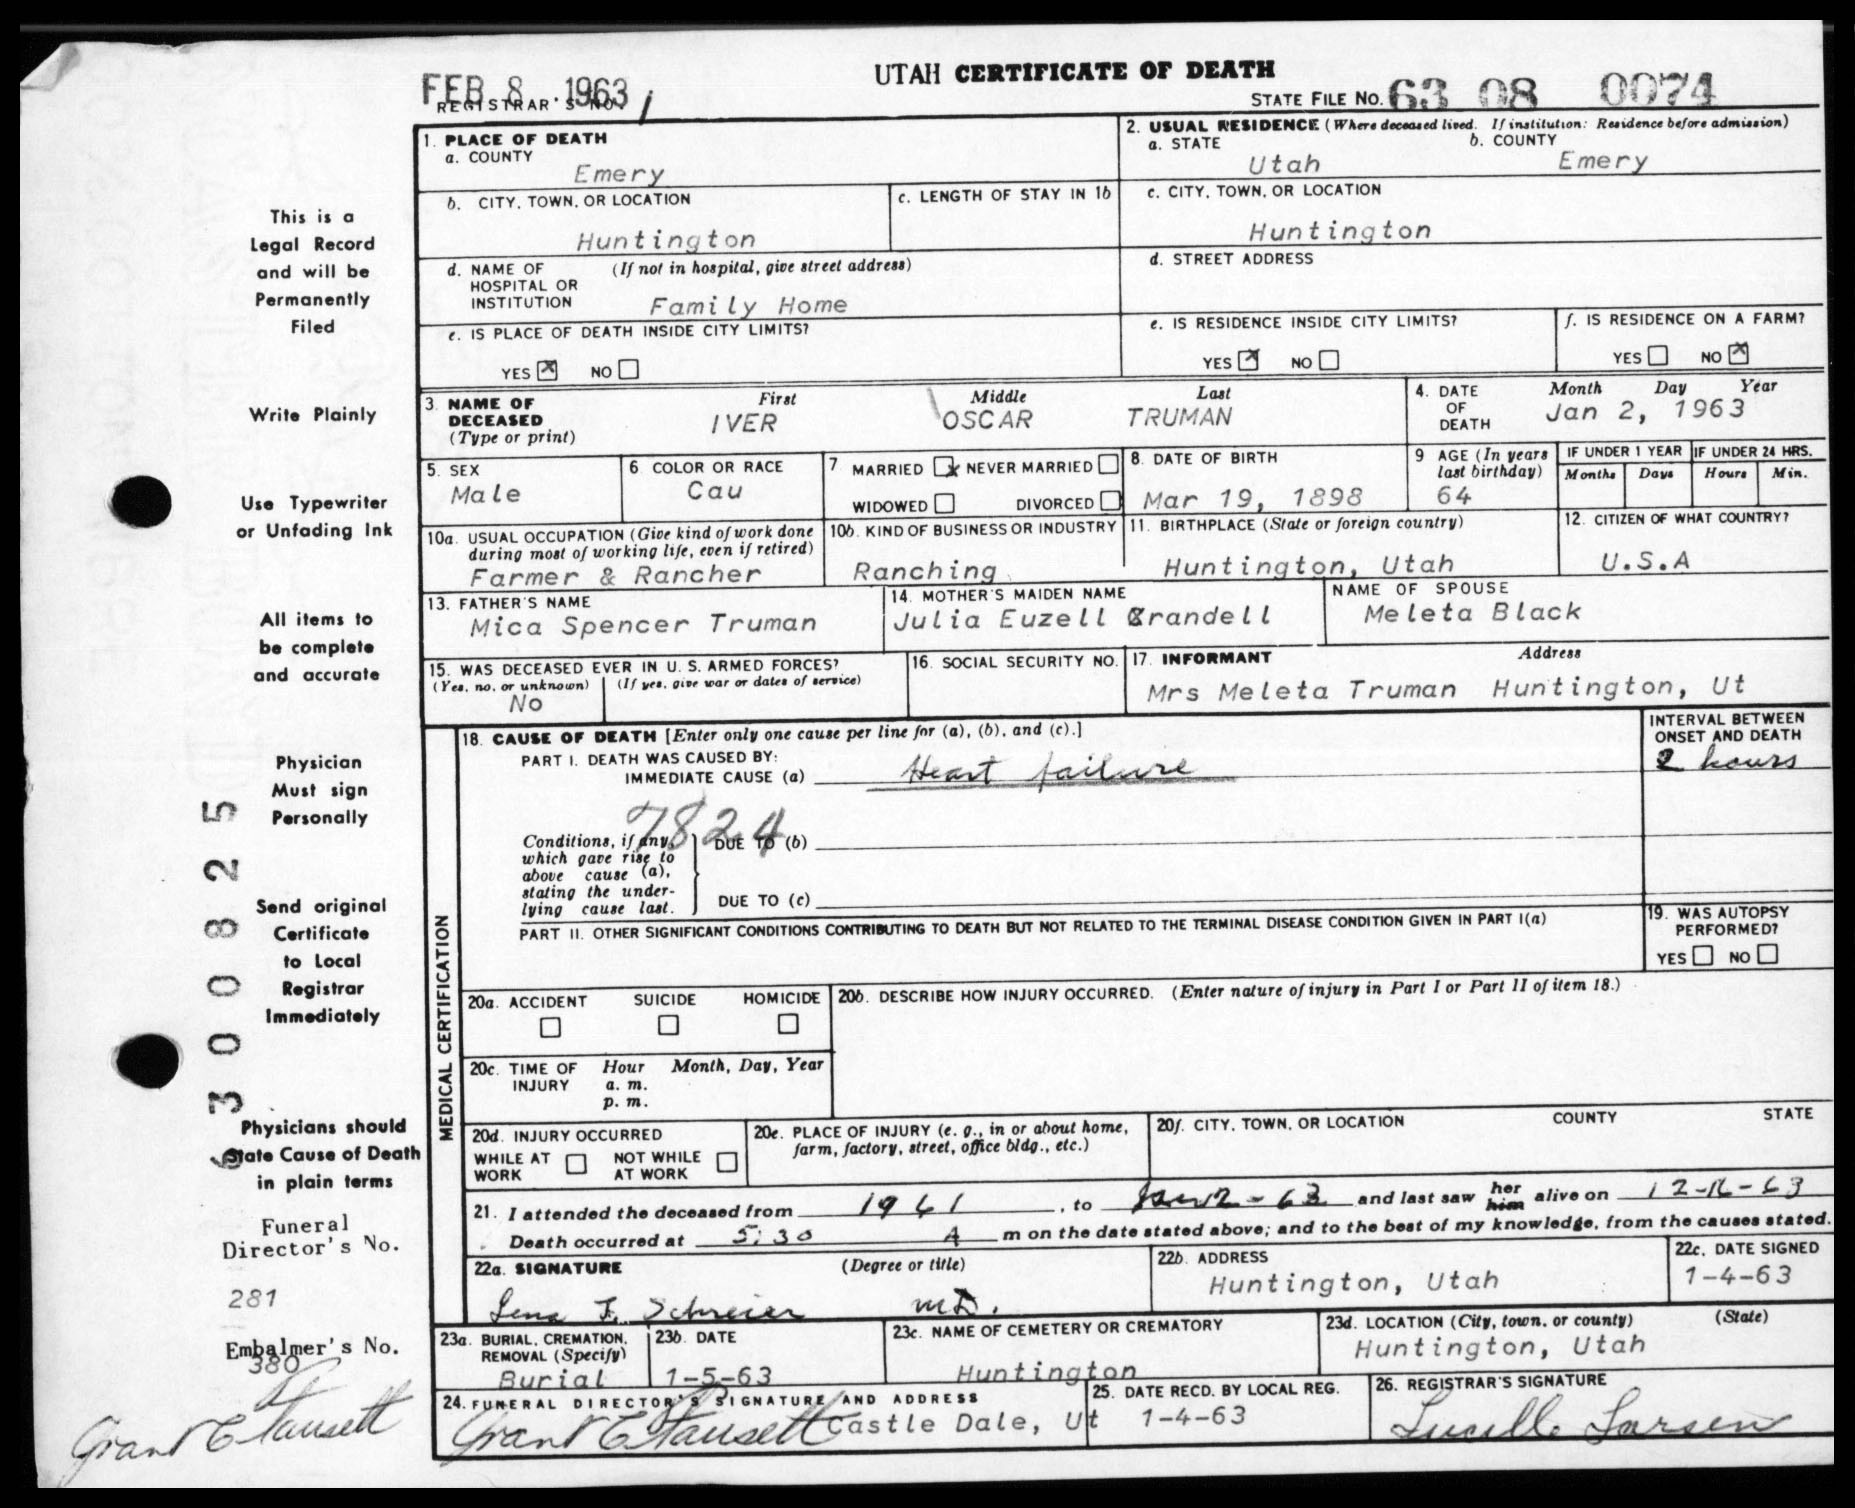 UTAH CERTIFICATE OF DEATH
FEB 8 1963
REGISTRAR'S NO. 1
STATE FILE NO. 63 08 0074
1. PLACE OF DEATH
a. COUNTY
Emery
2. USUAL RESIDENCE (Where deceased lived. If institution: Residence before admission)
a. STATE b. COUNTY
Utah Emery
b. CITY, TOWN, OR LOCATION
Huntington
c. LENGTH OF STAY IN 1b
c. CITY, TOWN, OR LOCATION
Huntington
d. NAME OF (If not in hospital, give street address)
HOSPITAL OR
INSTITUTION Family Home
d. STREET ADDRESS
e. IS PLACE OF DEATH INSIDE CITY LIMITS?
YES x NO
e. IS RESIDENCE INSIDE CITY LIMITS?
YES x NO
f. IS RESIDENCE ON A FARM?
YES NO x
3. NAME OF DECEASED (Type or print)
First Middle Last
IVER OSCAR TRUMAN
4. DATE OF DEATH
Month Day Year
Jan 2, 1963
5. SEX
Male
6 COLOR OR RACE
Cau
7 MARRIED x NEVER MARRIED
WIDOWED DIVORCED
8. DATE OF BIRTH
Mar 19, 1898
9 AGE (In years last birthday)
64
IF UNDER 1 YEAR IF UNDER 24 HRS.
Months Days Hours Min.
10a. USUAL OCCUPATION (Give kind of work done
during most of working life, even if retired)
Farmer & Rancher
10b. KIND OF BUSINESS OR INDUSTRY
Ranching
11. BIRTHPLACE (State or foreign country)
Huntington, Utah
12. CITIZEN OF WHAT COUNTRY?
U.S.A
13. FATHER'S NAME
Mica Spencer Truman
14. MOTHER'S MAIDEN NAME
Julia Euzell Crandell
NAME OF SPOUSE
Meleta Black
15. WAS DECEASED EVER IN U. S. ARMED FORCES?
(Yes, no, or unknown) (If yes, give war or dates of service)
No
16. SOCIAL SECURITY NO.
17. INFORMANT Address
Mrs Meleta Truman Huntington, Ut
MEDICAL CERTIFICATION
18. CAUSE OF DEATH [Enter only one cause per line for (a), (b), and (c).]
PART I. DEATH WAS CAUSED BY:
IMMEDIATE CAUSE (a) Heart failure
INTERVAL BETWEEN
ONSET AND DEATH
2 hours
7824
Conditions, if any, DUE TO (b)
which gave rise to
above cause (a),
stating the under-
lying cause last. DUE TO (c)
PART II. OTHER SIGNIFICANT CONDITIONS CONTRIBUTING TO DEATH BUT NOT RELATED TO THE TERMINAL DISEASE CONDITION GIVEN IN PART I(a)
19. WAS AUTOPSY
PERFORMED?
YES NO
20a. ACCIDENT SUICIDE HOMICIDE
20b. DESCRIBE HOW INJURY OCCURRED. (Enter nature of injury in Part I or Part II of item 18.)
20c. TIME OF INJURY Hour Month, Day, Year
a. m.
p. m.
20d. INJURY OCCURRED
WHILE AT WORK NOT WHILE AT WORK
20e. PLACE OF INJURY (e. g., in or about home,
farm, factory, street, office bldg., etc.)
20f. CITY, TOWN, OR LOCATION COUNTY STATE
21. I attended the deceased from 1961, to Jan 2-63 and last saw her him alive on 12-16-63
Death occurred at 5:30 A m on the date stated above; and to the best of my knowledge, from the causes stated.
22a. SIGNATURE (Degree or title)
Lena F. Schreier M.D.
22b. ADDRESS
Huntington, Utah
22c. DATE SIGNED
1-4-63
23a. BURIAL, CREMATION,
REMOVAL (Specify)
Burial
23b. DATE
1-5-63
23c. NAME OF CEMETERY OR CREMATORY
Huntington
23d. LOCATION (City, town, or county) (State)
Huntington, Utah
24. FUNERAL DIRECTOR'S SIGNATURE AND ADDRESS
Grant C Fausett Castle Dale, Ut
25. DATE RECD. BY LOCAL REG.
1-4-63
26. REGISTRAR'S SIGNATURE
Lucille Larsen
This is a
Legal Record
and will be
Permanently
Filed
Write Plainly
Use Typewriter
or Unfading Ink
All items to
be complete
and accurate
Physician
Must sign
Personally
Send original
Certificate
to Local
Registrar
Immediately
Physicians should
State Cause of Death
in plain terms
6 3 0 0 8 2 5
Funeral
Director's No.
281
Embalmer's No.
380
Grant C Fausett